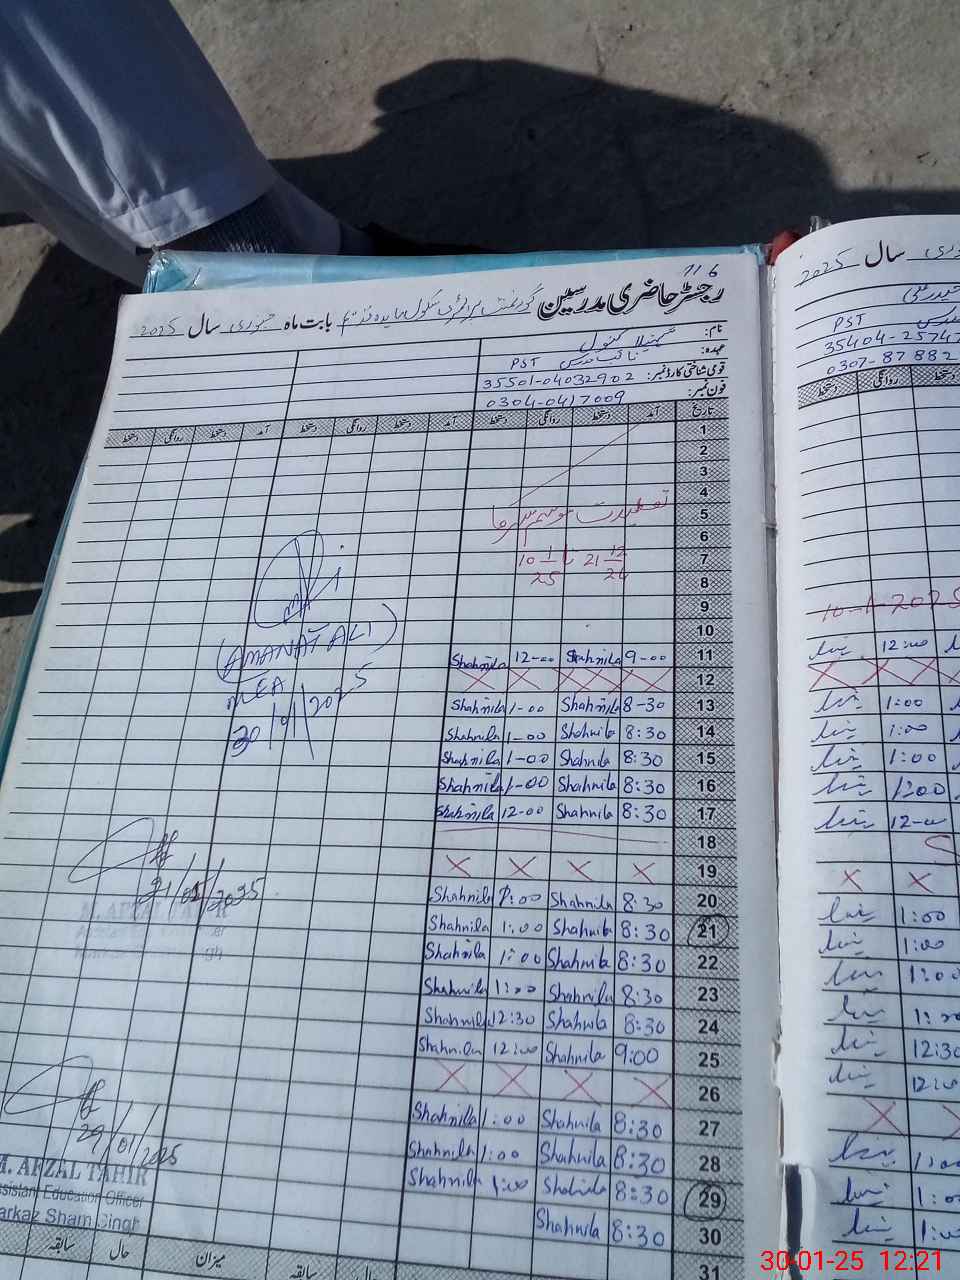 716
رجسٹر حاضری مدرسین گورنمنٹ پرائمری سکول بابت ماہ جنوری سال 2025
نام: شہنیلا کنول
عہدہ: نائب مدرس PST
قومی شناختی کارڈ نمبر: 35501-04032902
فون نمبر: 0304-0417009
تاریخ آمد دستخط روانگی دستخط آمد دستخط روانگی دستخط آمد دستخط روانگی دستخط
1
2
3
4
5 تعطیلات موسم سرما
6
7 21 12/24 تا 10 1/25
8
9
10
11 9-00 Shahnila 12-00 Shahnila
12 X X X X
13 8-30 Shahnila 1-00 Shahnila
14 8:30 Shahnila 1-00 Shahnila
15 8:30 Shahnila 1-00 Shahnila
16 8:30 Shahnila 1-00 Shahnila
17 8:30 Shahnila 12-00 Shahnila
18
19 X X X X
20 8:30 Shahnila 1:00 Shahnila
21 8:30 Shahnila 1:00 Shahnila
22 8:30 Shahnila 1:00 Shahnila
23 8:30 Shahnila 1:00 Shahnila
24 8:30 Shahnila 12:30 Shahnila
25 9:00 Shahnila 12:00 Shahnila
26 X X X X
27 8:30 Shahnila 1:00 Shahnila
28 8:30 Shahnila 1:00 Shahnila
29 8:30 Shahnila 1:00 Shahnila
30 8:30 Shahnila
31
(AMANAT ALI)
MEA
30/01/2025
21/01/2025
M. AFZAL TAHIR
29/01/2025
M. AFZAL TAHIR
Assistant Education Officer
Markaz Sham Singh
میزان حال سابقہ
سال 2025
PST
35404-2574
0307-87882
دستخط روانگی دستخط
10-1-2025
12:00
1:00
1:00
1:00
1:00
12-00
1:00
1:00
1:00
1:00
12:30
12:00
1:00
1:00
1:00
30-01-25 12:21